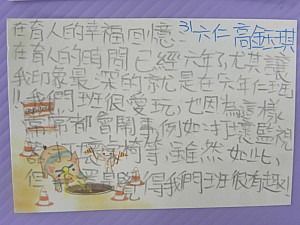 在育人的幸福回憶: 31六仁 高鈺琪
在育人的時間已經六年了尤其讓
我印象最深的就是在六年仁班
!!我們班很愛玩,也因為這樣
常常都會鬧事例如:打壞監視
器、打壞桌椅等,雖然如此,
但我還是覺得我們班很有趣!